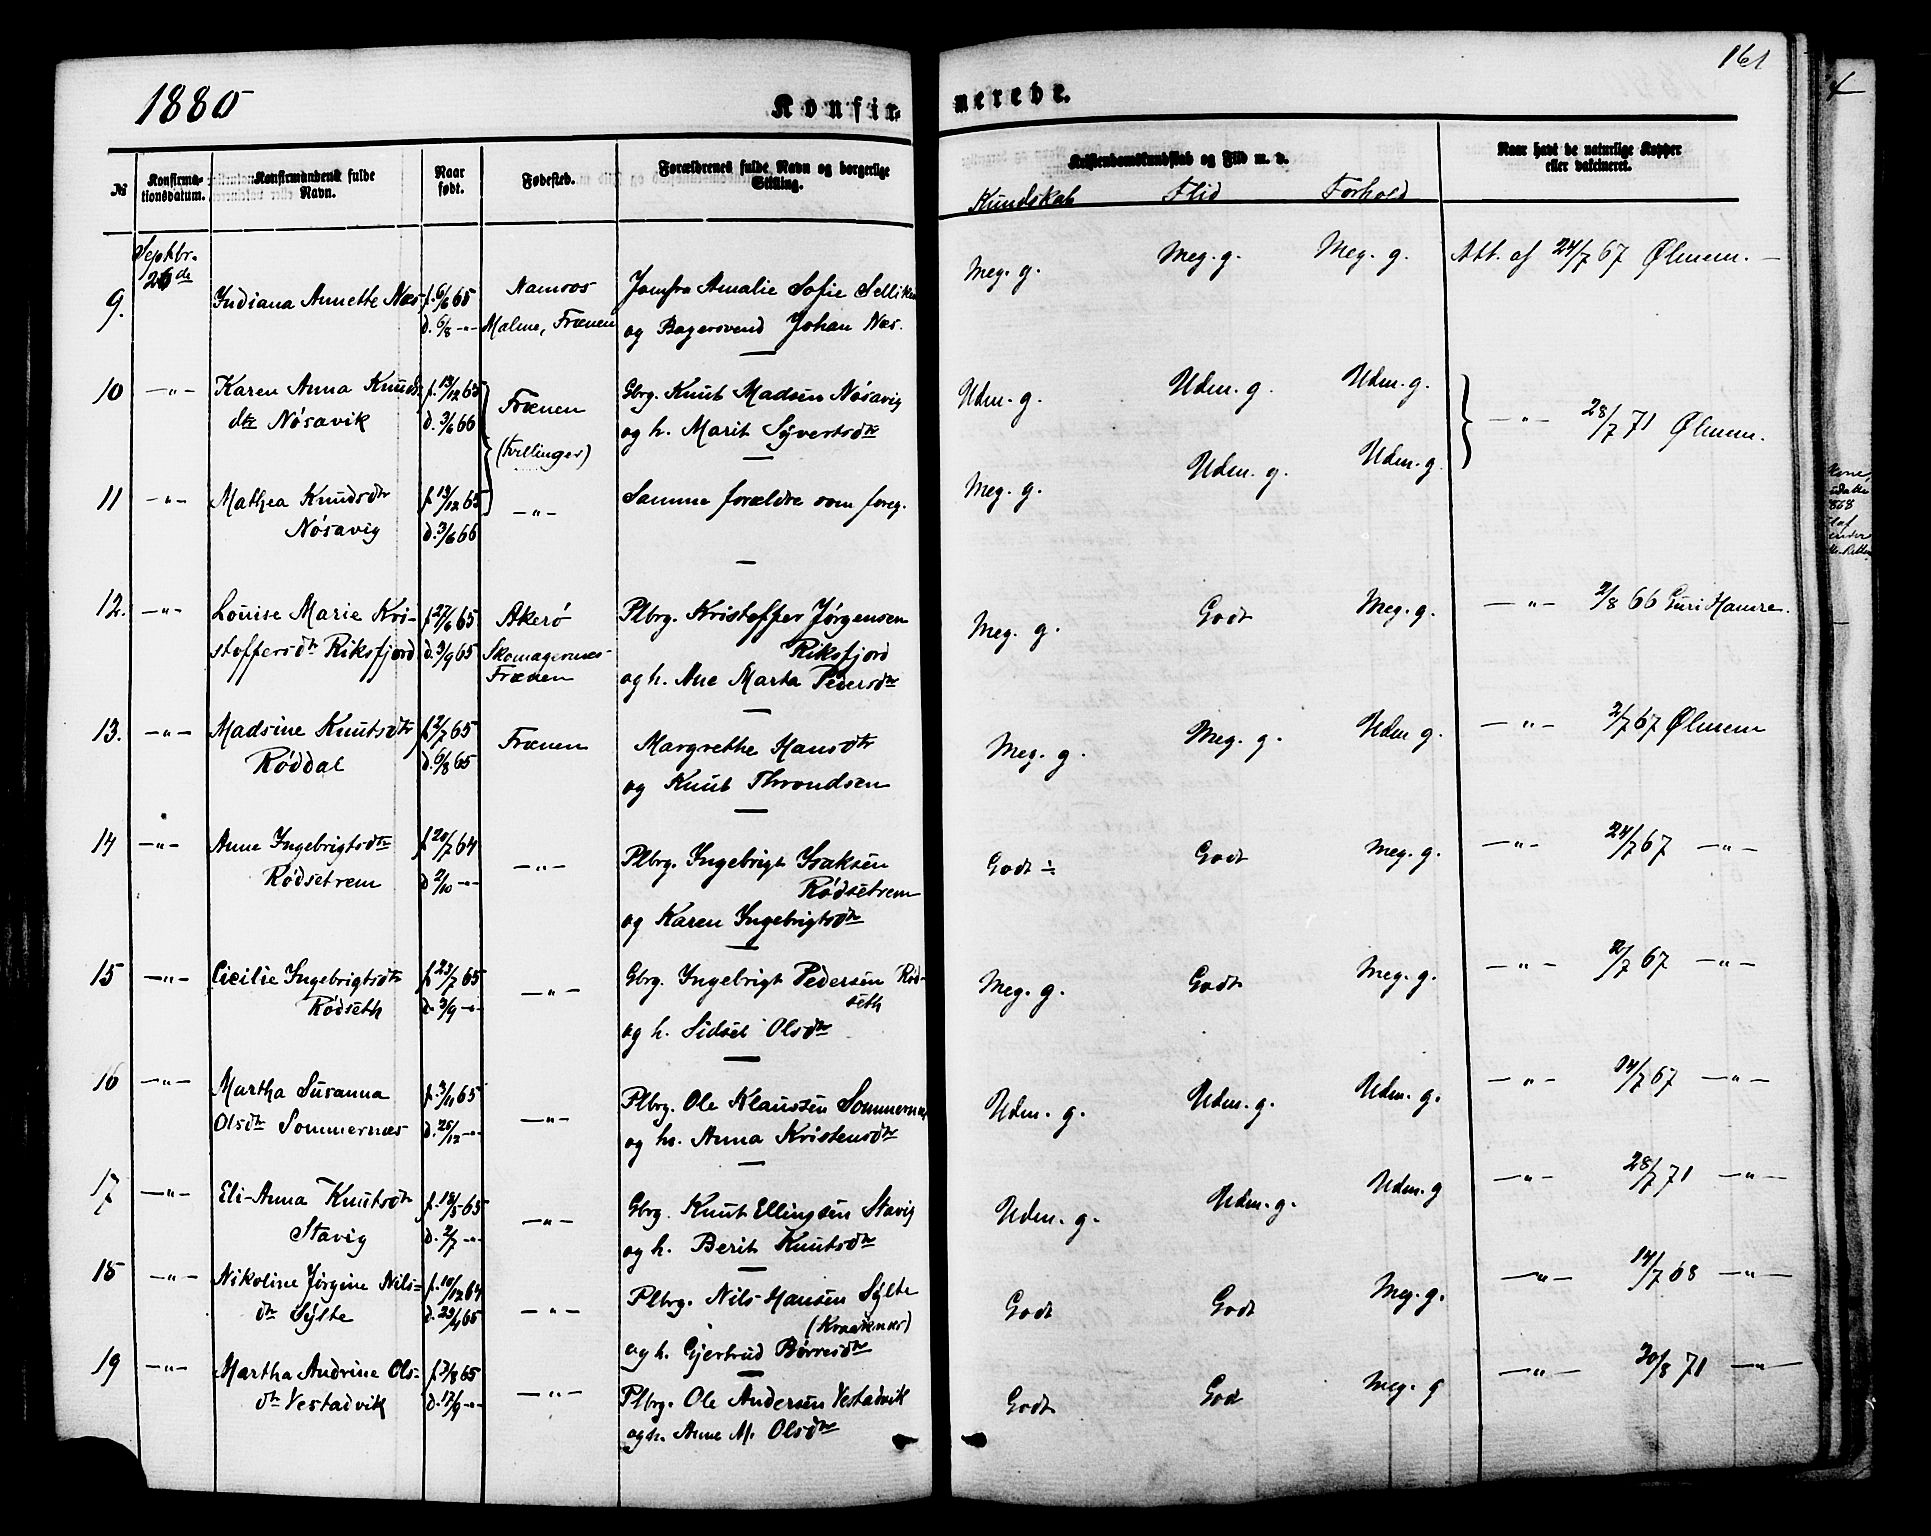 1880
161
Konfirmerede.
№ Konfirmationsdatum. Konfirmandens fulde Navn. Naar født. Fødested. Forældrenes fulde Navn og borgerlige Stilling. Kristendomskundskab og Flid m. v. Naar havt de naturlige Kopper eller vaccineret.
Kundskab Flid Forhold
Septbr. 26de
9. Indiana Annette Næs f. 6/6 65 Namsos Jomfru Amalie Sofie Selliken Meg. g. Meg. g. Meg. g. Att. af 24/7 67 Ølmem. —
d. 6/8 -"- Malme, Frænen og Bagersvend Johan Næs.
10 —"— Karen Anna Knuds- f. 13/12 65 Frænen Gbrg. Knut Madsen Nøsavig Udm. g. Udm. g. Udm. g. —"— 28/7 71 Ølmem.
dtr Nøsavik d. 3/6 66 (tvillinger) og h. Marit Syvertsdtr
11 -"- Mathea Knudsdtr f. 13/12 65 —"— Samme forældre som foreg. Meg. g. Udm. g. Udm. g.
Nøsavig d. 3/6 66
12. —"— Louise Marie Kri- f. 27/6 65 Akerø Plbrg. Kristoffer Jørgensen Meg. g. Godt Meg. g. —"— 2/8 66 Guri Hamre.
stoffersdtr Riksfjord d. 3/9 65 Skomagernæs- Riksfjord
Frænen og h. Ane Marta Pedersdtr
13. —"— Madsine Knutsdtr f. 2/7 65 Frænen Margrethe Hansdtr Meg. g. Meg. g. Udm g. —"— 2/7 67 Ølmem
Røddal d. 6/8 65 og Knut Throndsen
14 —"— Anne Ingebrigtsdtr f. 20/7 64 —"— Plbrg. Ingebrigt Isaksen Godt ÷ Godt Meg. g. —"— 24/7 67 —"—
Rødsetrem d. 2/10 -"- Rødsetrem
og Karen Ingebrigtsdtr
15 —"— Cicilie Ingebrigtsdtr f. 23/7 65 —"— Gbrg. Ingebrigt Pedersen Rød- Meg. g. Godt Meg. g. —"— 2/7 67 —"—
Rødseth d. 3/9 -"- seth
og h. Sidsel Olsdtr
16 —"— Martha Susanna f. 3/11 65 —"— Plbrg. Ole Klaussen Sommernæs Udm. g. Udm. g. Udm. g. —"— 14/7 67 —"—
Olsdtr Sommernæs d. 25/12 -"- og h. Anna Kristensdtr
17 —"— Eli-Anna Knutsdtr f. 18/5 65 —"— Gbrg. Knut Ellingsen Stavig Udm. g. Udm. g. Udm. g —"— 28/7 71 —"—
Stavig d. 2/7 -"- og h. Berit Knutsdtr
18 —"— Nikoline Jørgine Nils- f. 10/12 64 —"— Plbrg. Nils Hansen Sylte Godt Godt Meg. g. —"— 14/7 68 —"—
dtr Sylte d. 23/4 65 (Kraakenæs)
og h. Gjertrud Børresdtr
19 —"— Martha Andrine Ols- f. 3/8 65 —"— Plbrg. Ole Andersen Vestadvik Godt God Meg. g —"— 30/8 71 —"—
dtr Vestadvik d. 17/9 -"- og h. Anne M. Olsdtr